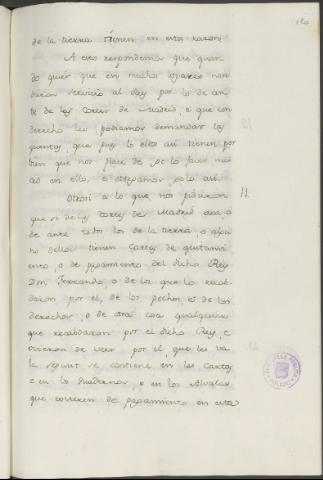 120
de la tierra tienen en esta razon
A esto respondemos que quan
do quier que en mucho logares man
daron servicio al Rey por lo de an
te de las Cortes de Madrid, e que con
derecho les podiamos demandar las
cuentas, que pues lo ellos asi tienen por
bien que nos place de les facer mer
ced en ello, e otorgamos selo asi.
Otrosi a lo que nos pidieron 11.
que si de las Cortes de Madrid aca o
de ante todos los de la tierra, o algu
no dellos tienen Cartas de quitamie
ento, o de pagamiento del dicho Rey
Don Fernando, o de los que lo recab
daron por el, de los pechos, e de los
derechos, o de otra cosa qualquiera
que recabdaron por el dicho Rey, e
ovieron de veer por el, que les va
la segunt se contiene en las Cartas
e en los Quadernos, o en los Alvalas
que tovieren de pagamiento en esta